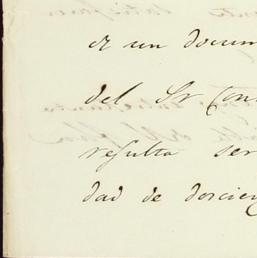 de un docum
del Sr Con
resulta ser
dad de doscien